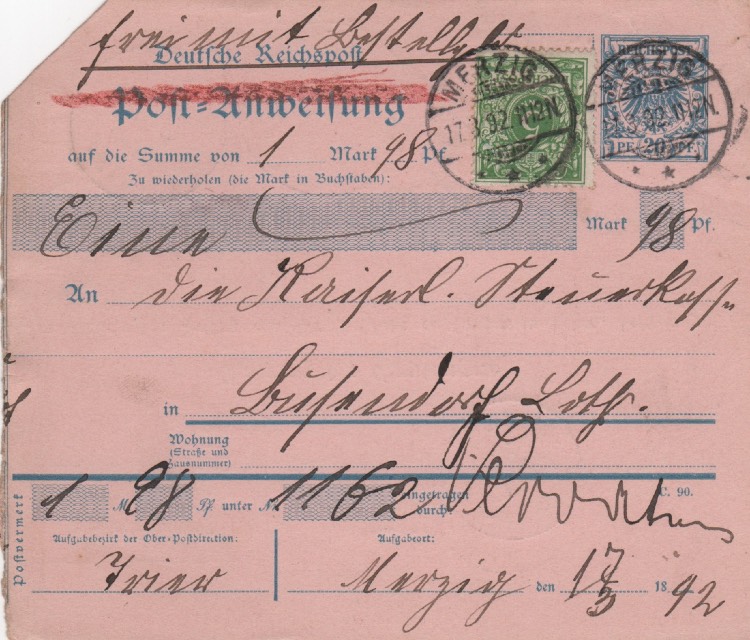 frei mit Bestellg.
Deutsche Reichspost
Post-Anweisung
auf die Summe von 1 Mark 98 Pf.
Zu wiederholen (die Mark in Buchstaben):
Eine Mark 98 Pf.
An die Kaiserl. Steuerkasse
in Busendorf Loth.
Wohnung
(Straße und
Hausnummer)
1 M 98 Pf unter Nr. 1162 eingetragen
durch:
C. 90.
Postvermerk
Aufgabebezirk der Ober-Postdirection:
Aufgabeort:
Trier
Merzig den 17/3 18 92
MERZIG
17.3.92 11-12N.
REICHSPOST
20 PF.
MERZIG
3.92 11-12N.